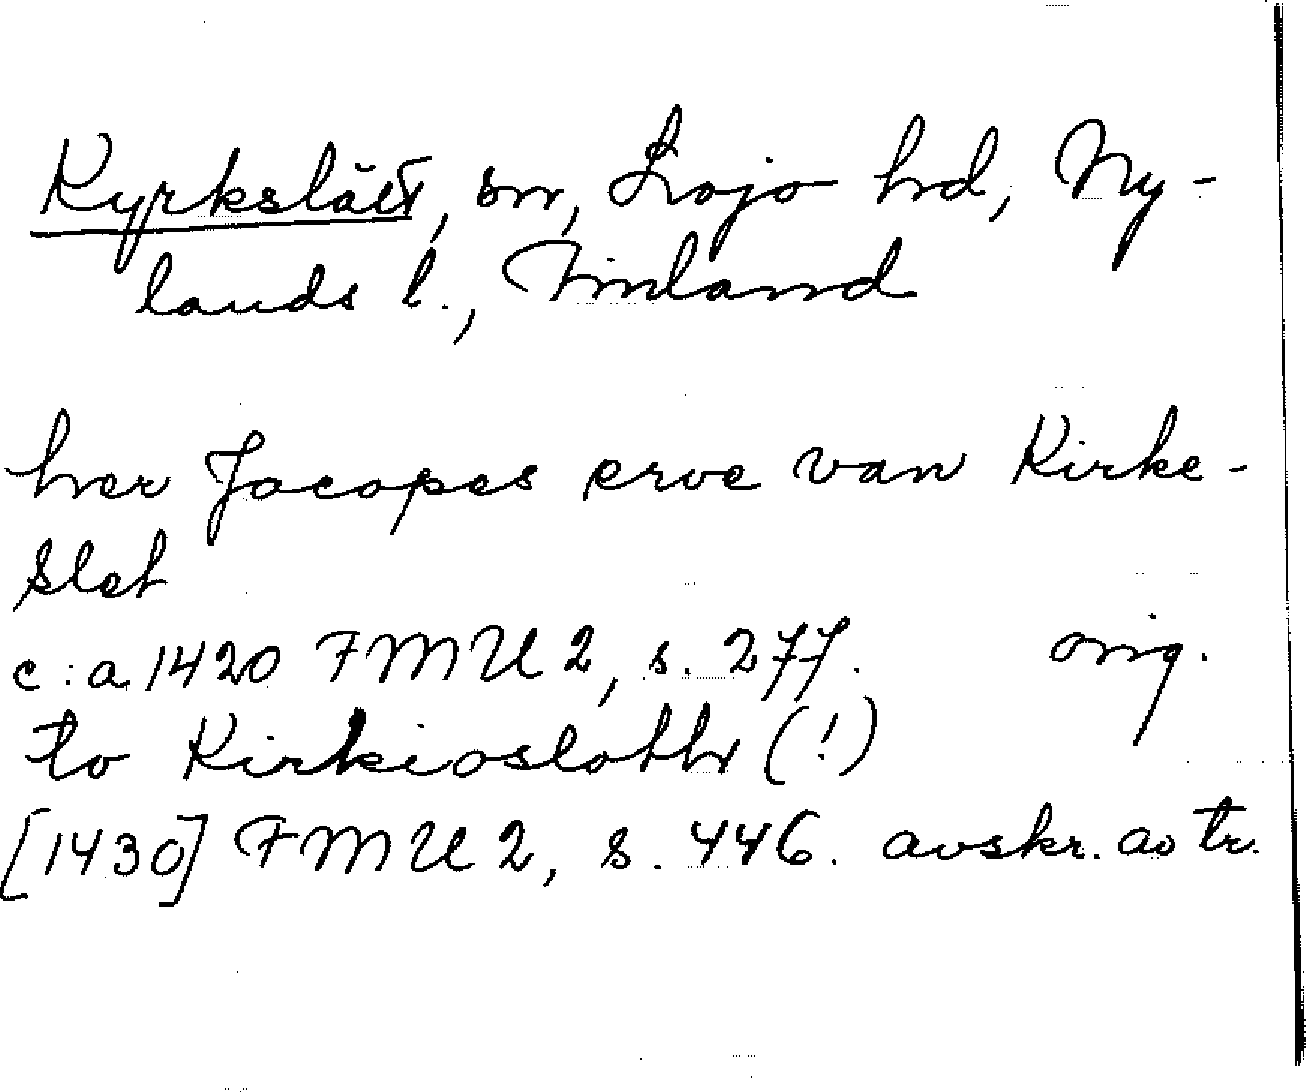 Kyrkslätt, sn, Lojo hd, Ny-
lands l., Finland
her Jacopes erve van Kirke-
slet
c:a 1420 FMU 2, s. 277. orig.
to Kirkioslothr (!)
[1430] FMU 2, s. 446. avskr. av tr.